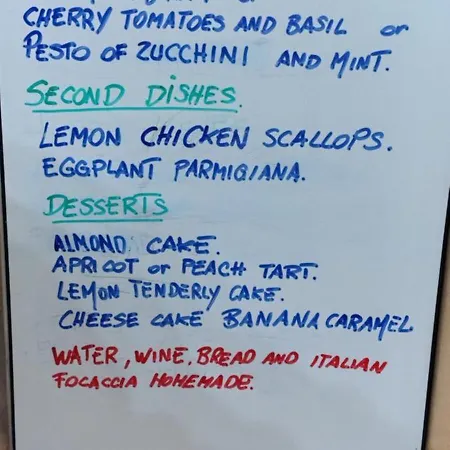 CHERRY TOMATOES AND BASIL or
PESTO OF ZUCCHINI AND MINT.
SECOND DISHES.
LEMON CHICKEN SCALLOPS.
EGGPLANT PARMIGIANA.
DESSERTS
ALMOND CAKE.
APRICOT or PEACH TART.
LEMON TENDERLY CAKE.
CHEESE CAKE BANANA CARAMEL
WATER, WINE, BREAD AND ITALIAN
FOCACCIA HOMEMADE.